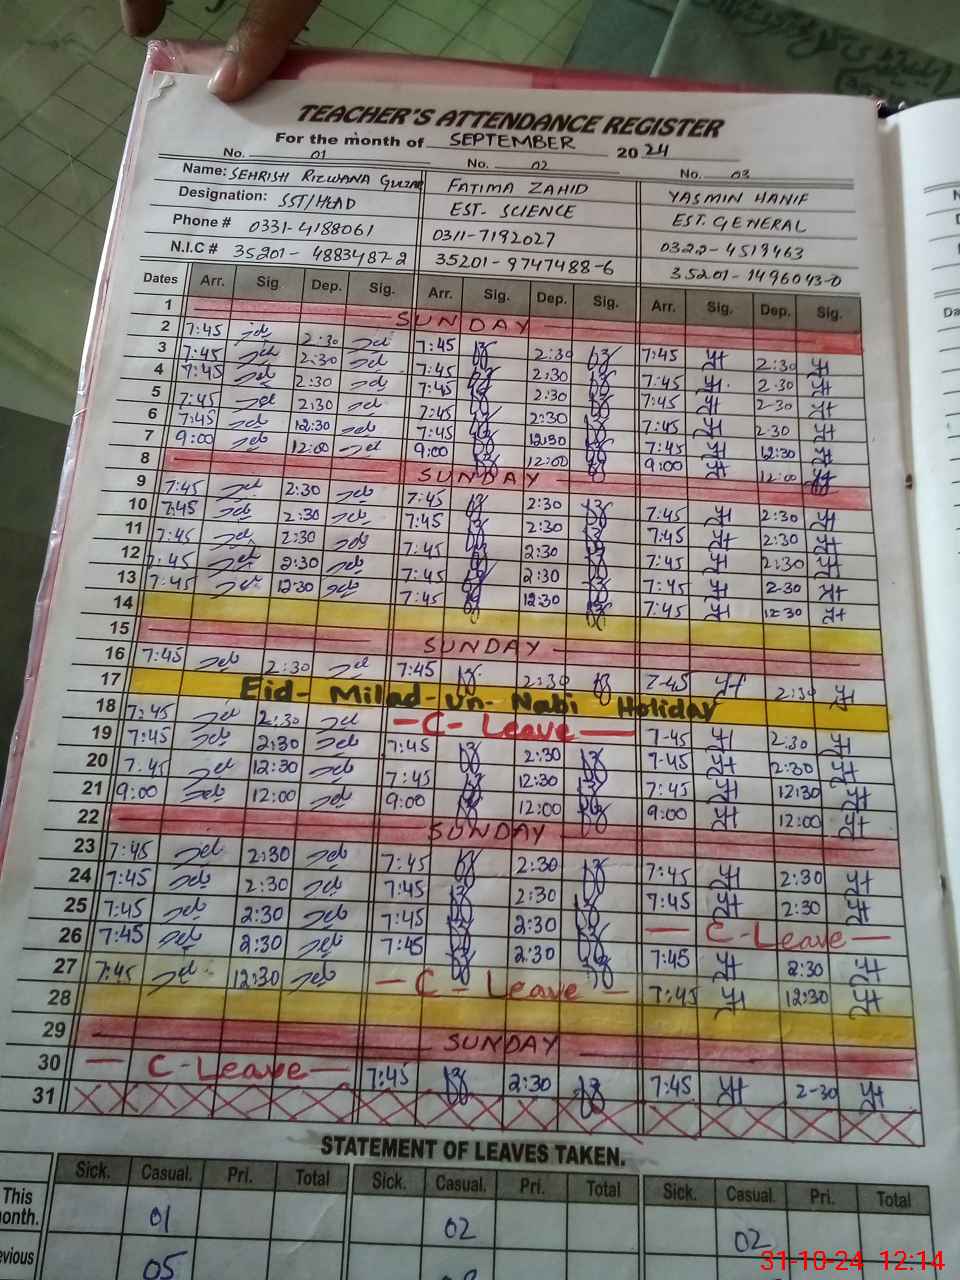 TEACHER'S ATTENDANCE REGISTER
For the month of SEPTEMBER 2024
No. 01 No. 02 No. 03
Name: SEHRISH RIZWANA FATIMA ZAHID YASMIN HANIF
Designation: SST/HEAD EST- SCIENCE EST. GENERAL
Phone # 0331-4188061 0311-7192027 0322-4519463
N.I.C # 35201-4883487-2 35201-9747488-6 35201-1496043-0
Dates Arr. Sig. Dep. Sig. Arr. Sig. Dep. Sig. Arr. Sig. Dep. Sig.
1 SUNDAY
2 7:45 2:30 7:45 2:30 7:45 2:30
3 7:45 2:30 7:45 2:30 7:45 2:30
4 7:45 2:30 7:45 2:30 7:45 2-30
5 7:45 2:30 7:45 2:30 7:45 2-30
6 7:45 12:30 7:45 12:30 7:45 12:30
7 9:00 12:00 9:00 12:00 9:00 12:00
8 SUNDAY
9 7:45 2:30 7:45 2:30 7:45 2:30
10 7:45 2:30 7:45 2:30 7:45 2:30
11 7:45 2:30 7:45 2:30 7:45 2:30
12 7:45 2:30 7:45 2:30 7:45 2-30
13 7:45 12:30 7:45 12:30 7:45 12:30
14
15 SUNDAY
16 7:45 2:30 7:45 2:30 7-45 2:30
17 Eid- Milad-un-Nabi Holiday
18 7:45 2:30 -C- Leave- 7-45 2:30
19 7:45 2:30 7:45 2:30 7-45 2:30
20 7:45 12:30 7:45 12:30 7:45 12:30
21 9:00 12:00 9:00 12:00 9:00 12:00
22 SUNDAY
23 7:45 2:30 7:45 2:30 7:45 2:30
24 7:45 2:30 7:45 2:30 7:45 2:30
25 7:45 2:30 7:45 2:30 - C-Leave -
26 7:45 2:30 7:45 2:30 7:45 2:30
27 7:45 12:30 - C - Leave - 7:45 12:30
28
29 SUNDAY
30 - C-Leave- 7:45 2:30 7:45 2-30
31
STATEMENT OF LEAVES TAKEN.
Sick. Casual. Pri. Total Sick. Casual. Pri. Total Sick. Casual. Pri. Total
This
onth. 01 02 02
evious 05
31-10-24 12:14